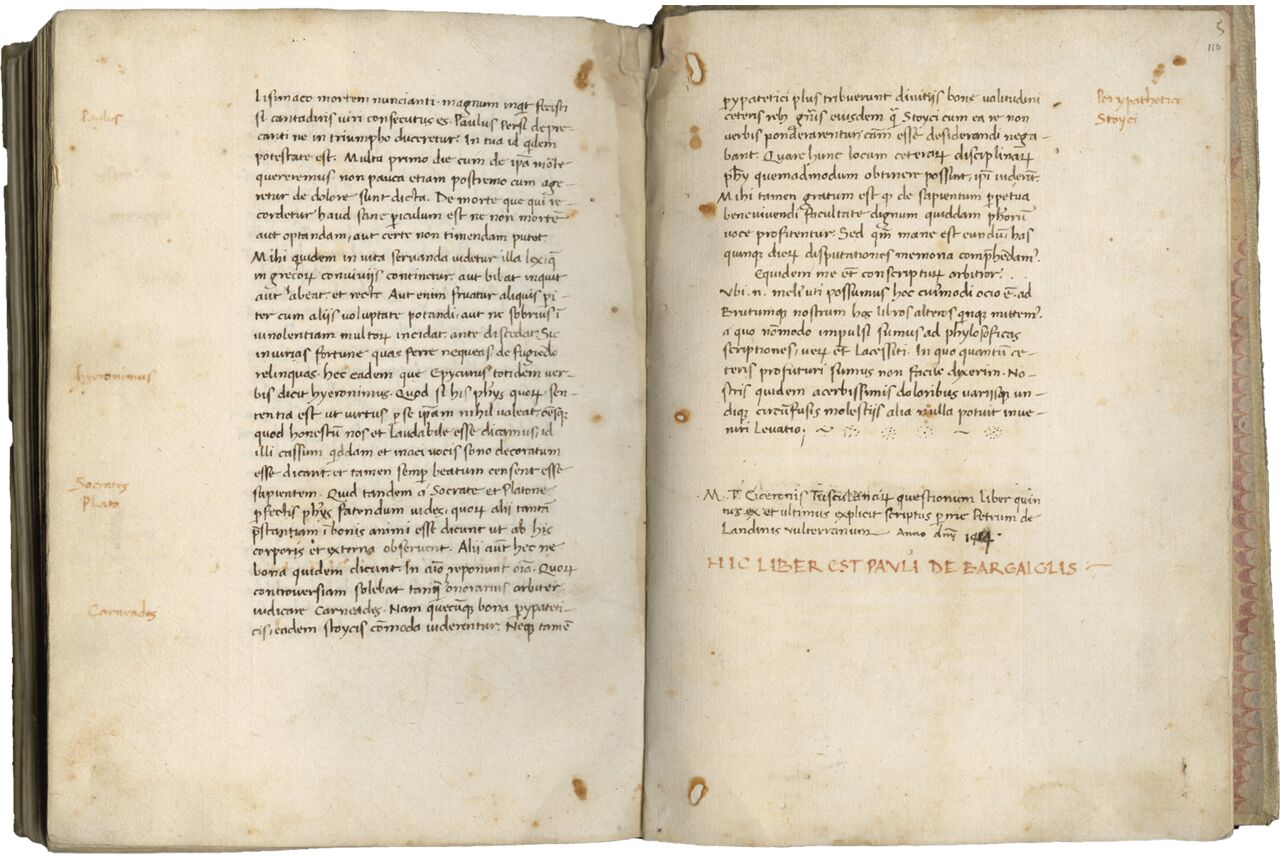 Paulus
hyeronimus
Socrates
Plato
Carneades
Lisimaco mortem nuncianti. magnum inqt fecisti
si cantaridis viri consecutus es. Paulus Persi depre-
canti ne in triumpho duceretur. In tua id qdem
potestate est. Multa primo die cum de ipa morte
quereremus non pauca etiam postremo cum age-
retur de dolore sunt dicta. De morte que qui re-
cordetur haud sane periculum est ne non mortē
aut optandam, aut certe non timendam putet.
Mihi quidem in vita servanda videtur illa lex, q
in grecorum conviviis continetur. aut bibat inquit
aut abeat. et recte. Aut enim fruatur aliquis pi-
ter cum aliis voluptate potandi, aut ne sobrius ī
vinolentiam multorum incidat. ante discedat. Sic
iniurias fortune quas ferre nequeas de fugiēdo
relinquas. hec eadem que Epycurus totidem ver-
bis dicit hyeronimus. Quod si his phys quorum sen-
tentia est ut virtus p se ipam nihil valeat oēsq
quod honestū nos et laudabile esse dicamus, id
illi cassum qddam et inani vocis sono decoratum
esse dicant. et tamen semp beatum censent esse
sapientem. Quid tandem a Socrate et Platone
pfectis phys fatendum vides, quorum alii tantā
pstantiam ī bonis animi esse dicunt ut ab his
corporis et externa observent. Alii aut hec ne
bona quidem dicunt. In aīo reponunt oīa. Quorum
controversiam solebat tanq onorarius arbiter
iudicare Carneades. Nam quecūq bona pypateti-
cis, eadem stoycis cōmoda viderentur. Neq tamē
5
110
Perypathetici
Stoyci
pypatetici plus tribuerunt divitijs bone valitudini
ceteris reb gnis eiusdem q Stoyci cum ea re non
verbis ponderarentur, cam esse desiderandi nega-
bant. Quare hunc locum ceterarum disciplinarum
phy quemadmodum obtinere possint, ipi viderint.
Mihi tamen gratum est q de sapientum ppetua
benevivendi facultate dignum quiddam phorum
voce profitentur. Sed qm mane est eundū, has
quinq dierum disputationes memoria comphēdam.
Equidem me et conscripturum arbitror.
Ubi .n. meli uti possumus hoc cuimodi ocio ē. ad
Brutumq nostrum hos libros alteros qinq mittem.
a quo nōmodo impulsi sumus ad phylosoficas
scriptiones, verum et lacessiti. In quo quantū ce-
teris profuturi sumus non facile dyxerim. No-
stris quidem acerbissimis doloribus variisq un-
diq circūfusis molestijs alia nulla potuit inve-
niri levatio;
M. T. Ciceronis Tusculanarum questionum liber quin
tus et ultimus explicit scriptus p me Petrum de
Landinis vulterranum Anno dnj
HIC LIBER EST PAVLI DE BARGAIGLIS